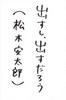 出すし、出すだろう
（松木安太郎）